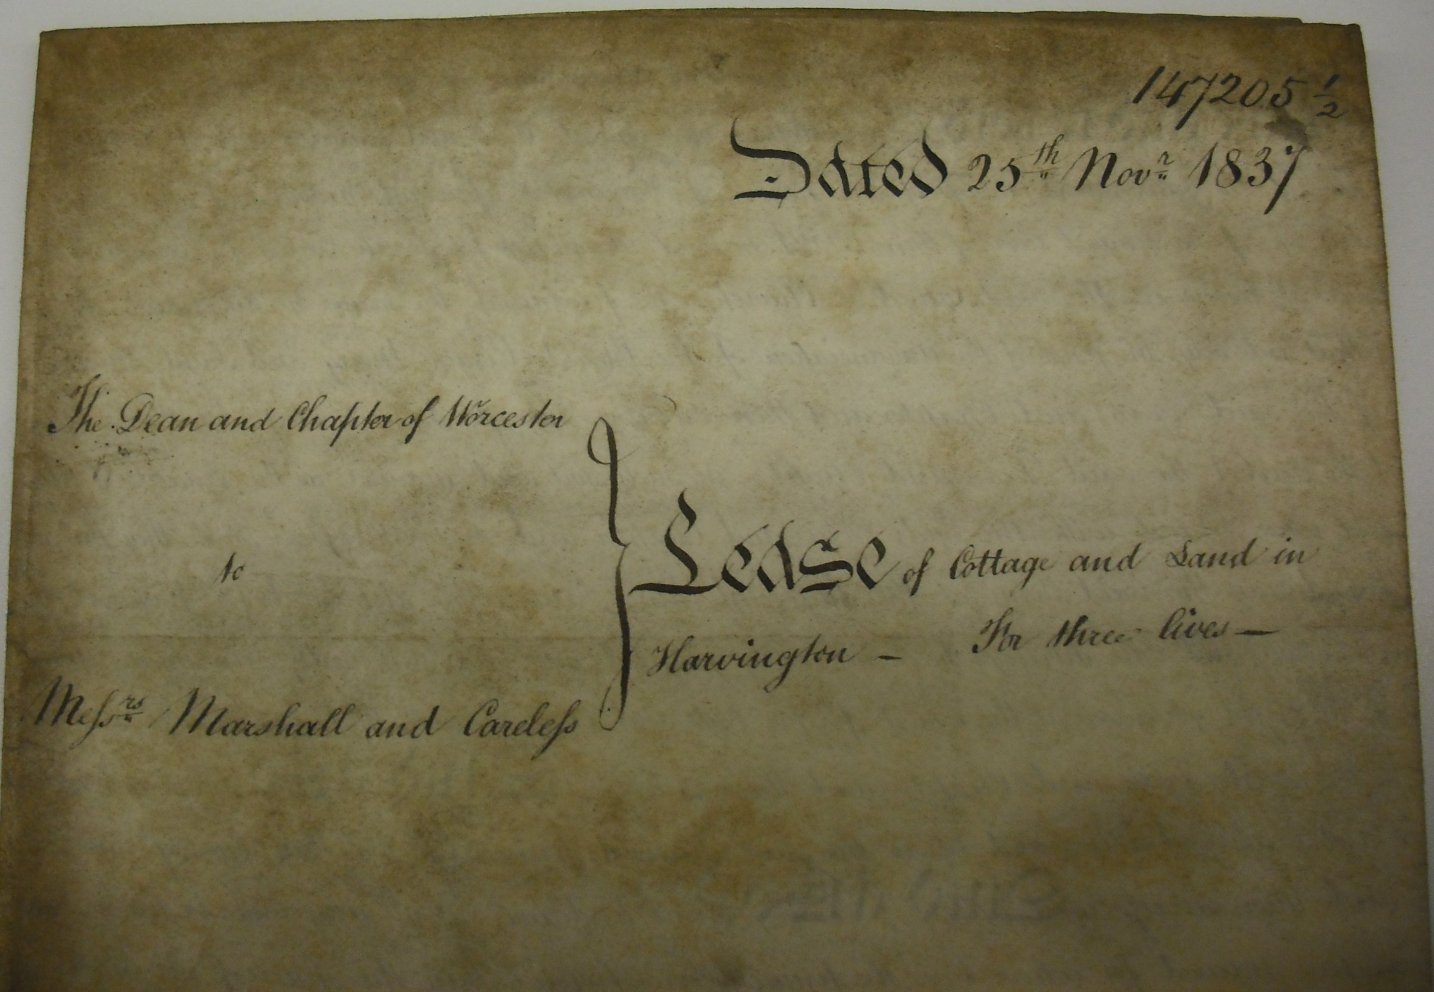 147205 1/2
Dated 25th Novr 1837
The Dean and Chapter of Worcester
to
Messrs Marshall and Careless
Lease of Cottage and Land in
Harvington – For three lives –